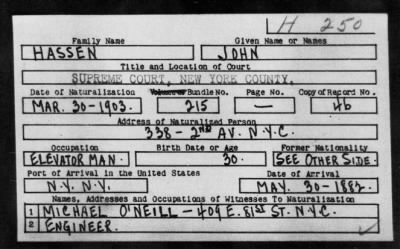 H 250
Family Name Given Name or Names
HASSEN JOHN
Title and Location of Court
SUPREME COURT, NEW YORK COUNTY.
Date of Naturalization Volume or Bundle No. Page No. Copy of Record No.
MAR. 30-1903. 215 — 46
Address of Naturalized Person
338 - 2ND AV. N.Y.C.
Occupation Birth Date or Age Former Nationality
ELEVATOR MAN. 30. SEE OTHER SIDE.
Port of Arrival in the United States Date of Arrival
N.Y. N.Y. MAY. 30-1882.
Names, Addresses and Occupations of Witnesses To Naturalization
1 MICHAEL O'NEILL - 409 E. 81ST ST. N.Y.C.
2 ENGINEER.